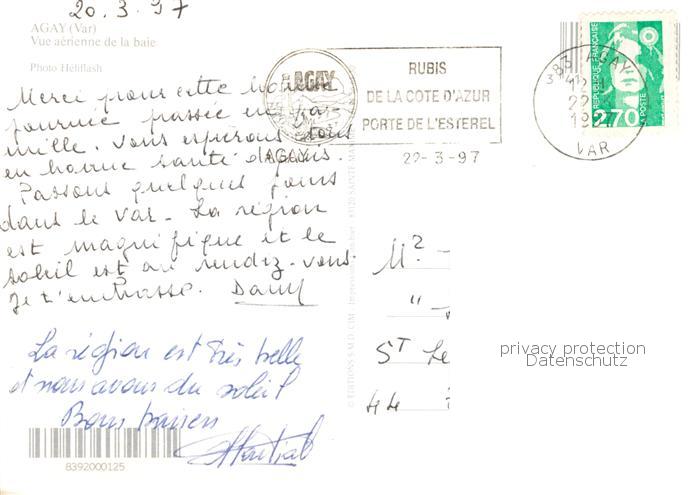 20.3.97
AGAY (Var)
Vue aérienne de la baie
Photo Héliflash
Merci pour cette bonne
journée passée en fa-
mille. Vous espérons tous
en bonne santé depuis.
Passons quelques jours
dans le Var - La région
est magnifique et le
soleil est au rendez-vous.
Je t'embrasse. Dany
La région est très belle
et nous avons du soleil
Bons baisers
AGAY
AGAY
RUBIS
DE LA COTE D'AZUR
PORTE DE L'ESTEREL
22-3-97
83 AGAY
VAR
REPUBLIQUE FRANÇAISE
LA POSTE
2,70
M?
"
ST Le
44
privacy protection
Datenschutz
8392000125